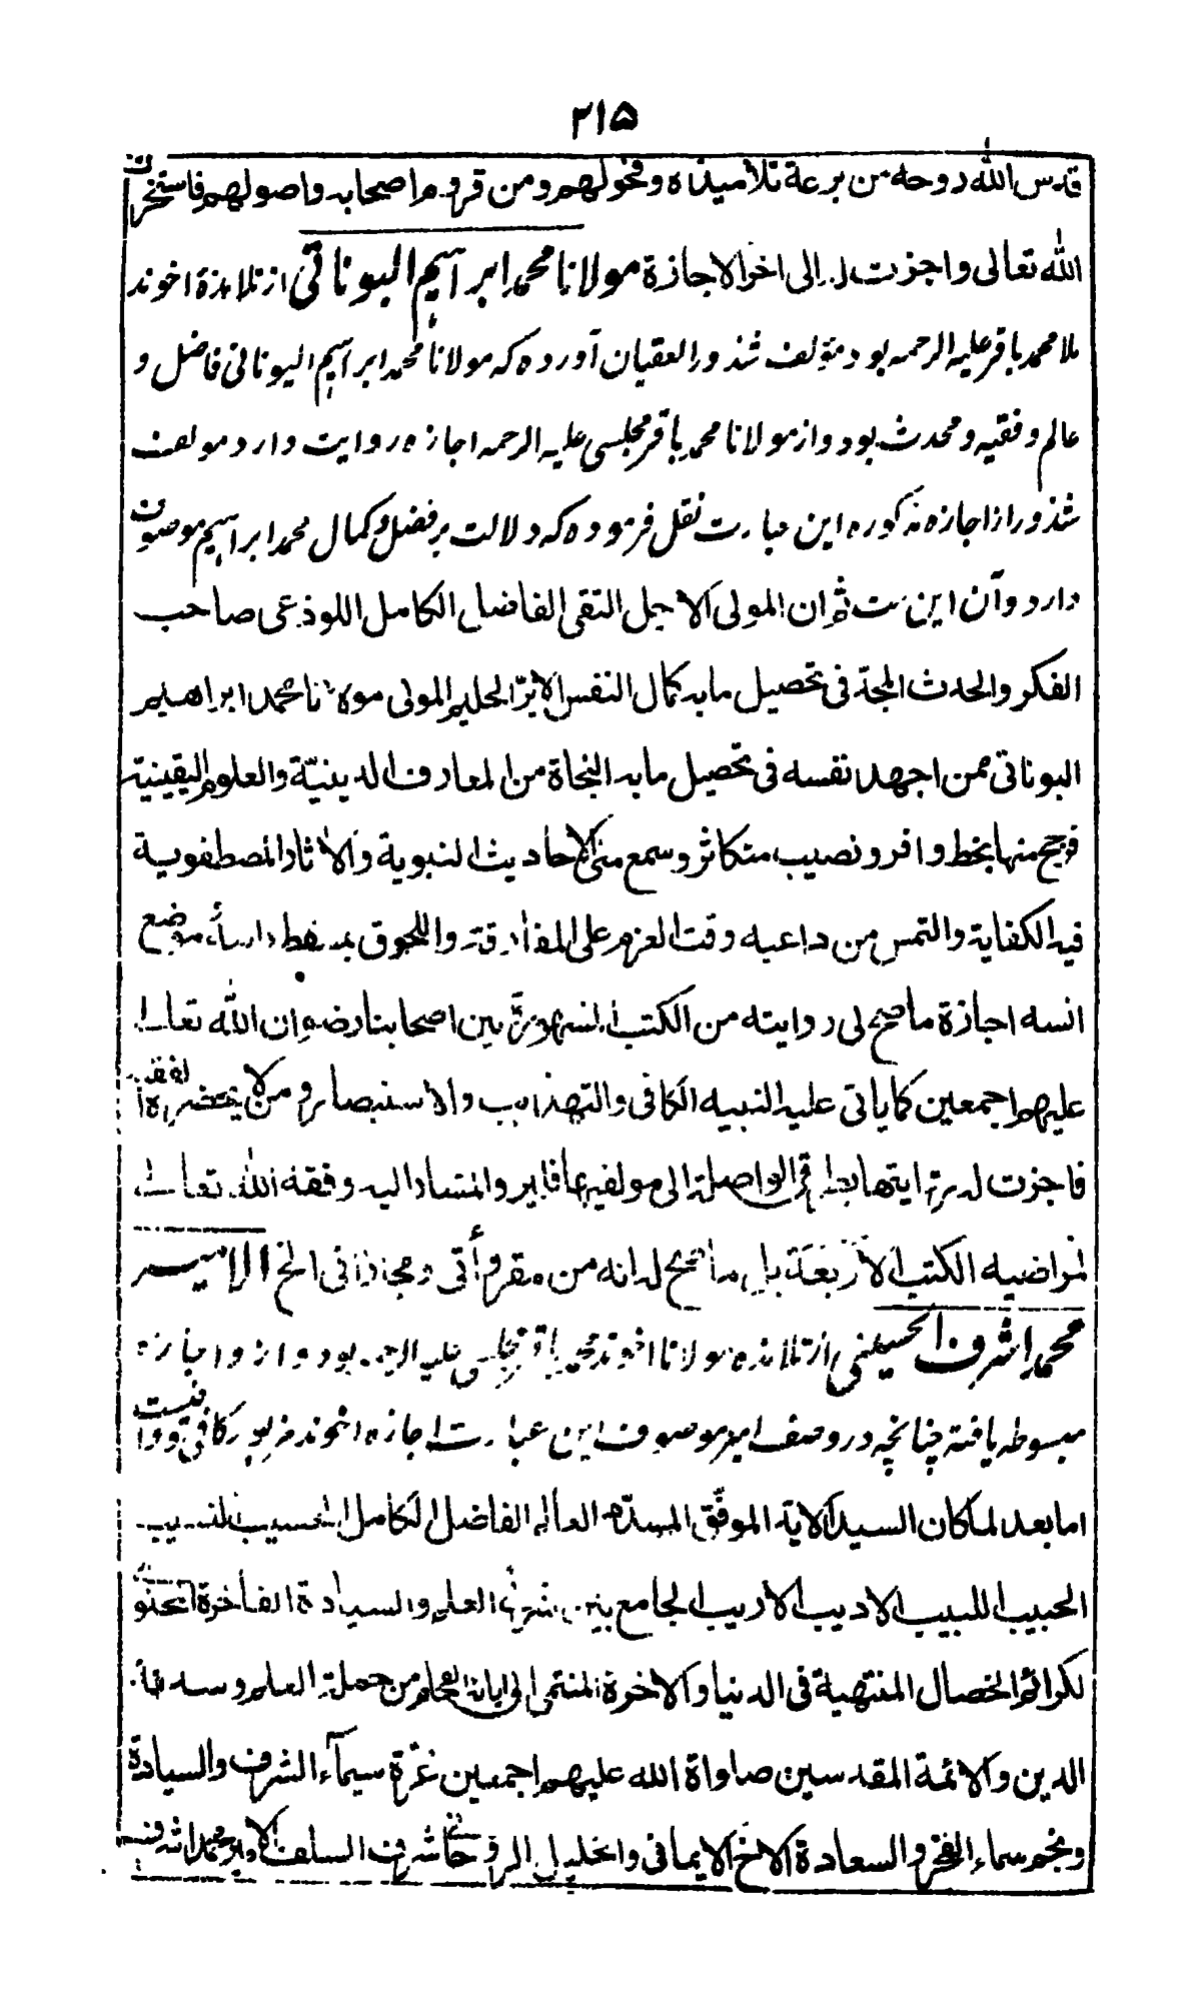 ۲۱۵
قدس الله روحه من برعة تلاميذه وفحولهم ومن قروم اصحابه واصولهم فاستخرت
الله تعالى واجزت له الى اخر الاجازة مولانا محمد ابراهیم البوناتی از تلامذۀ اخوند
ملا محمد باقر علیه الرحمه بود مؤلف شذور العقیان آورده که مولانا محمد ابراهیم البوناتی فاضل و
عالم و فقیه و محدث بود و از مولانا محمد باقر مجلسی علیه الرحمه اجازه روایت دارد مولف
شذور از اجازه مذکوره این عبارت نقل فرموده که دلالت بر فضل و کمال محمد ابراهیم موصوف
دارد و آن این ست ثم ان المولى الاجل التقى الفاضل الكامل اللوذعى صاحب
الفكر والحدث المجد فى تحصيل ما به كمال النفس الابرّ الحليم المولى مولانا محمد ابراهيم
البوناتى ممن اجهد نفسه فى تحصيل ما به النجاة من المعارف الدينيّة والعلوم اليقينية
منها بخط وافر ونصيب متكاثر وسمع منى الاحاديث النبوية والاثار المصطفوية
فيه الكفاية والتمس من داعيه وقت العزم على المفارقة واللحوق بمسقط راسه موضع
انسه اجازة ما صح لى روايته من الكتب المشهورة بين اصحابنا رضوان الله تعالى
عليهم اجمعين كما ياتى عليه التنبيه الكافى والتهذيب والاستبصار ومن لا يحضره الفقيه
فاجزت له روايتها الواصلة الى مولفيها والمشار اليه وفقه الله تعالى
لمراضيه الكتب الاربعة بل ما صح له انه من مقروأتى ومجازاتى الخ الامیر
محمد اشرف الحسینی از تلامذه مولانا اخوند محمد باقر مجلسی علیه الرحمه بود و از و اجازه
مبسوطه یافته چنانچه در وصف امیر موصوف این عبارت اجازه اخوند مزبور کافی و وافیست
اما بعد لما كان السيد الايد الموفّق المسدد العالم الفاضل الكامل الحسيب النسيب
الحبيب اللبيب الاديب الاريب الجامع بين شرفى العلم والسيادة الفاخرة
لكرائم الخصال المنتهية فى الدنيا والاخرة المنتمى الى من حملة العلم
الدين والائمة المقدسين صلواة الله عليهم اجمعين غرّة سيمآء الشرف والسيادة
ونجم سماء الفخر والسعادة الاخ الايمانى والخليل الروحانى شرف السلف الامير محمد اشرف